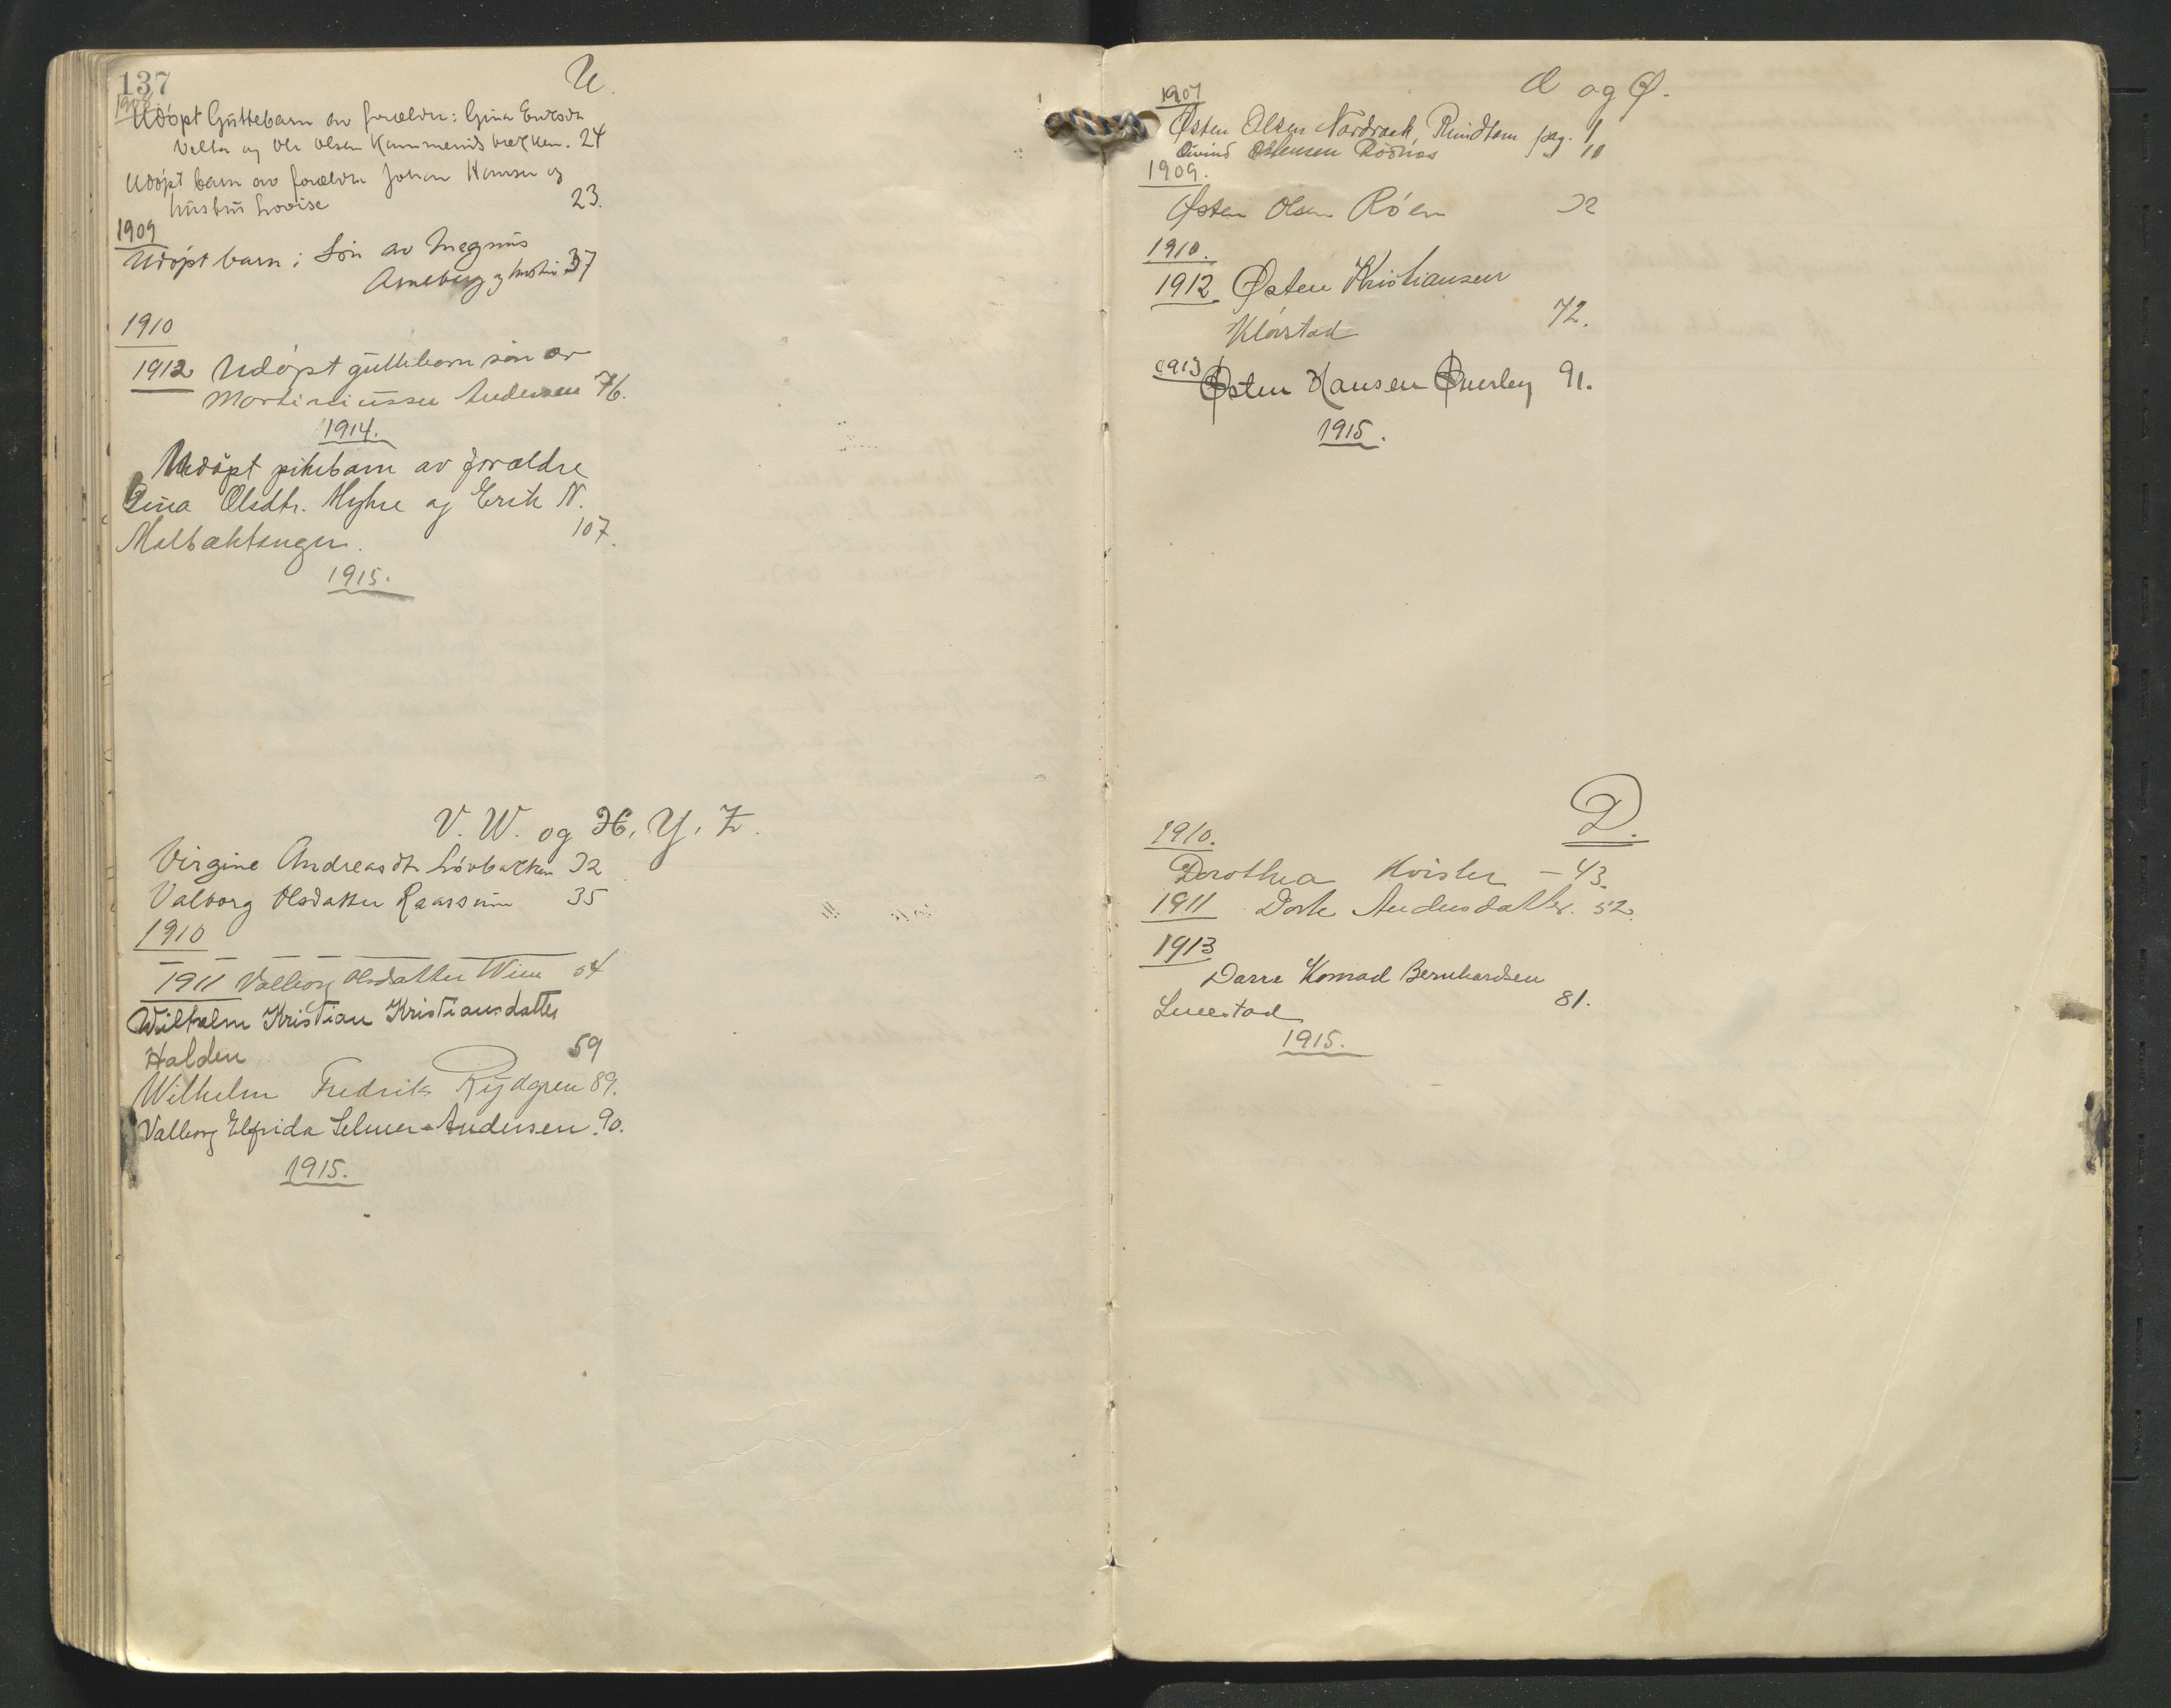 137
U.
1908
Udöpt Guttebarn av forældre: Gina
Velta og Ole Olsen 24
Udöpt barn av forældre Johan Hansen og
hustru Lovise 23.
1909
Udöpt barn; Sön av Magnus
Arneberg og hustru 37
1910
1912 Udöpt guttebarn sön av
Martiniussen Andersen 76.
1914.
Udöpt pikebarn av forældre
Olsdtr. Myhre og Erik N.
107.
1915.
V. W. og X, Y, Z.
Virgine Andreasdtr Lövbækken 32
Valborg Olsdatter Raassum 35
1910
1911 Valborg Olsdatter Wiin 54
Wilhelm Kristian Kristiansdatter
Halden 59
Wilhelm Fredrik Rydgren 89.
Valborg Elfrida Selmer-Andersen. 90.
1915.
Æ og Ø.
1907
Østen Olsen pag. 1
Øivind Østensen 11
1909.
Østen Olsen Röen 32
1910.
1912 Østen Kristiansen
Klövstad 72.
1913
Østen Hansen Øverby 91.
1915.
D.
1910.
Dorothea Kvisler – 43.
1911 Dorte Andersdatter. 52.
1913
Konrad Bernhardsen
81.
1915.